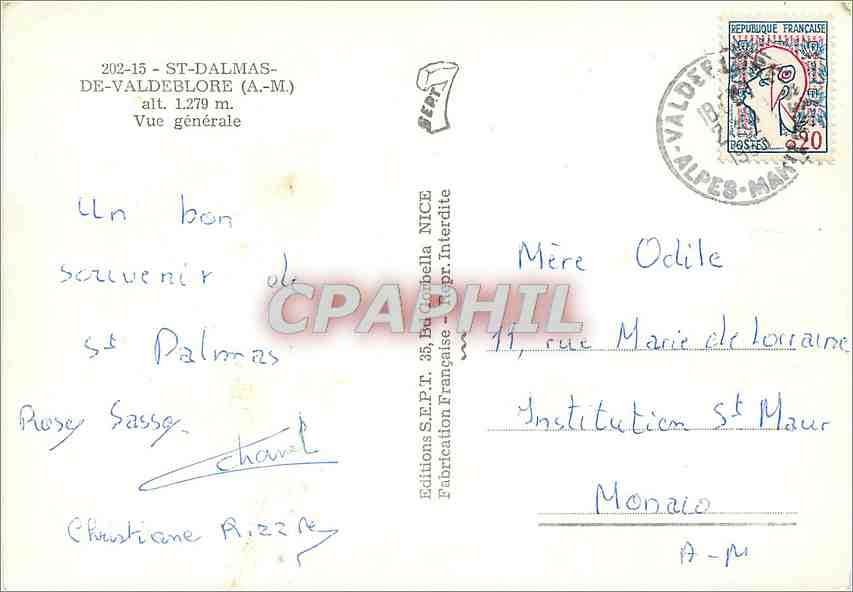 202-15 - ST-DALMAS-
DE-VALDEBLORE (A.-M.)
alt. 1.279 m.
Vue générale
Un bon
souvenir de
St Dalmas
Rosy Sasso
Christiane
SEPT
Editions S.E.P.T. 35, Bd Gorbella NICE
Fabrication Française - Repr. Interdite
REPUBLIQUE FRANÇAISE
POSTES 0.20
18
ALPES-MARITIMES
Mère Odile
11, rue Marie de Lorraine
Institution St Maur
Monaco
A-M
CPAPHIL